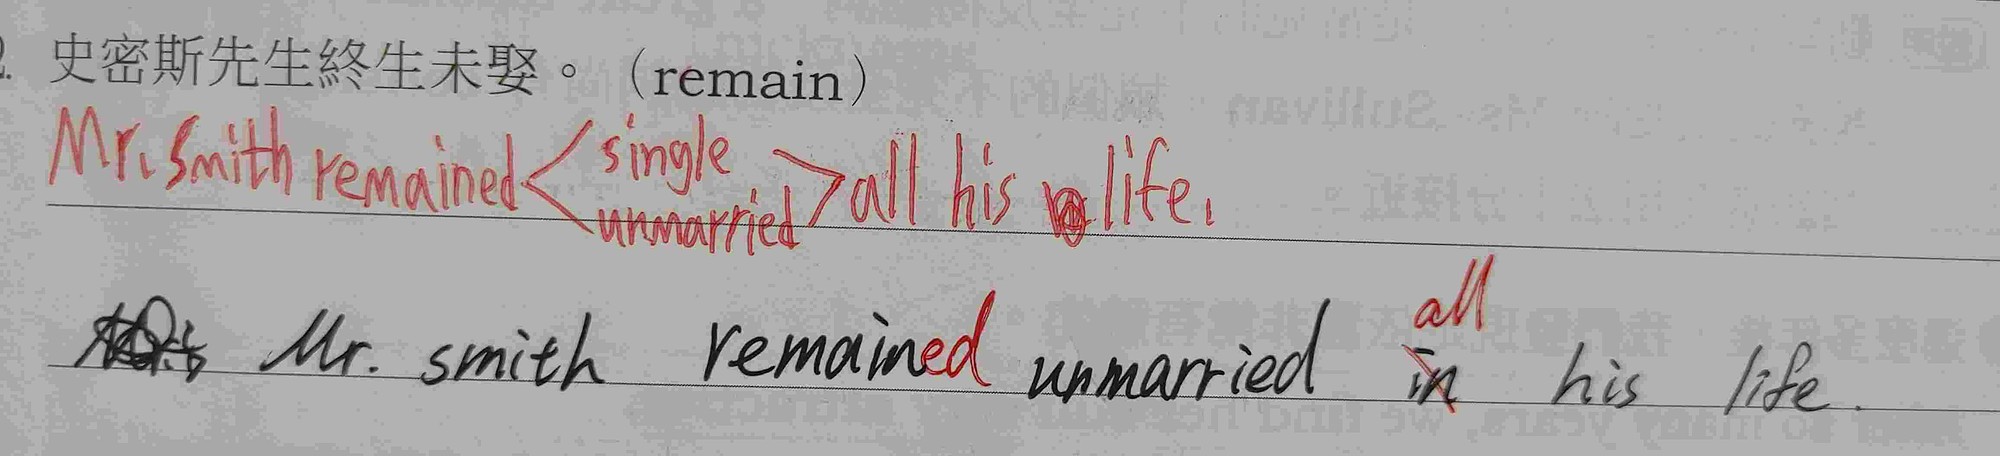 史密斯先生終生未娶。（remain）
Mr. Smith remained < single unmarried > all his life.
all
Mr. smith remained unmarried in his life.